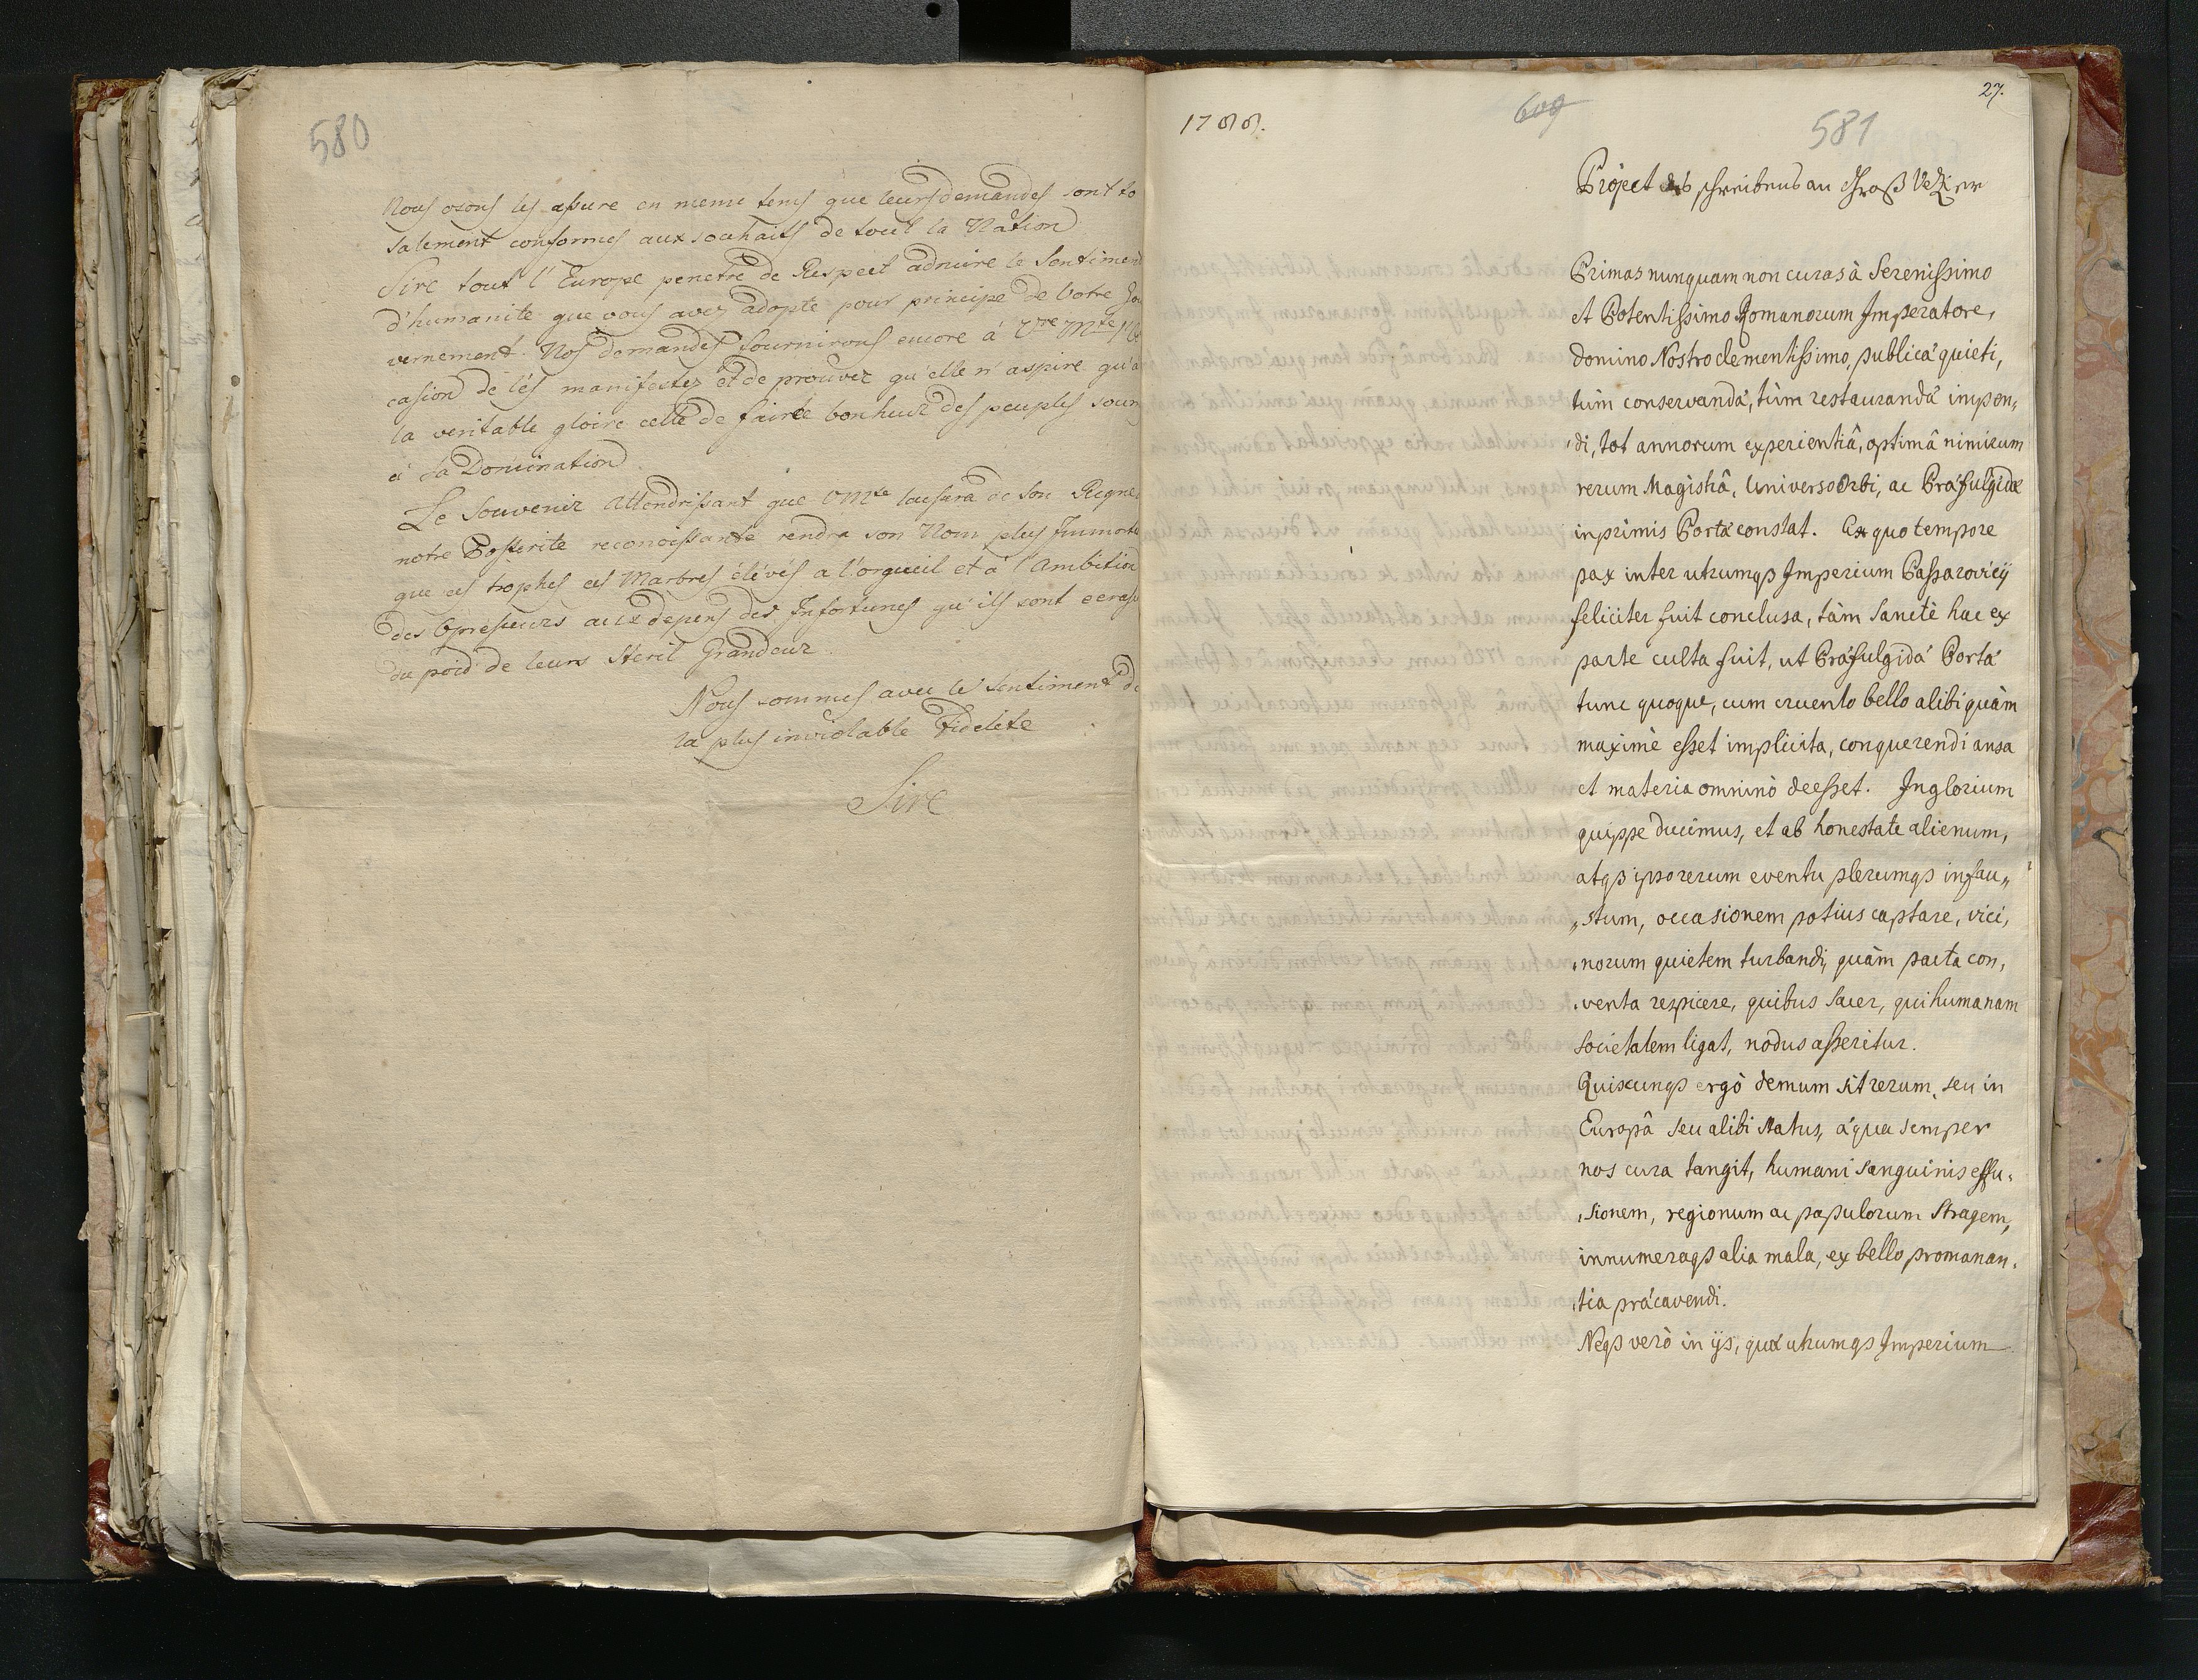 580
Nous osons les assure en meme tems que leurs demandes sont to
talement conformes aux souhaits de tout la Nation
Sire tout l'Europe penetré de Respect admire le Sentiment
d'humanite que vous avez adopte pour principe de Votre Gou
vernement. Nos demandes fourniront encore á Vre Mte l'Oc
casion de les manifester et de prouver qu'elle n'aspire qu'a
la veritable gloire celle de faire le bonheur des peuples soum
á sa Domination
Le Souvenir attendrissant que VMte laissera de Son Regne
notre Posterite reconoissante rendra son Nom plus Immorte
que ces trophes ces Marbres élévés a l'orgueil et á l'Ambition
des Opresseurs aux depens des Infortunes qu'ils ont ecrasé
du poid de leurs Steril Grandeur
Nous sommes avec le sentiment de
la plus inviolable Fidelete
Sire
27.
1788.
609
581
Project des schreibens an Groß Vezier
Primas nunquam non curas à Serenissimo
et Potentissimo Romanorum Imperatore,
domino Nostro clementissimo, publicá quieti,
tùm conservandá, tùm restaurandá impen,
di, tot annorum experientiâ, optimâ nimirum
rerum Magistrâ, Universo Orbi, ac Práfulgidæ
inprimis Portá constat. Ex quo tempore
pax inter utrumqs Imperium Passarovicij
feliciter fuit conclusa, tàm Sanctè hac ex
parte culta fuit, ut Práfulgidá Portá
tunc quoque, cum cruento bello alibi quàm
maximè esset implicita, conquerendi ansa
et materia omninò deesset. Inglorium
quippe ducimus, et ab honestate alienum,
atqs ipso rerum eventu plerumqs infau„
„stum, occasionem potius captare, vici,
,norum quietem turbandi, quàm pacta con,
,venta respicere, quibus Sacer, qui humanam
societatem ligat, nodus asseritur.
Quiscunqs ergò demum sit rerum, seu in
Europâ seu alibi status, áqua semper
nos cura tangit, humani sanguinis effu,
,sionem, regionum ac papulorum Stragem,
innumeraqs alia mala, ex bello promanan,
,tia prácavendi.
Neqs verò in ijs, quæ utrumqs Imperium